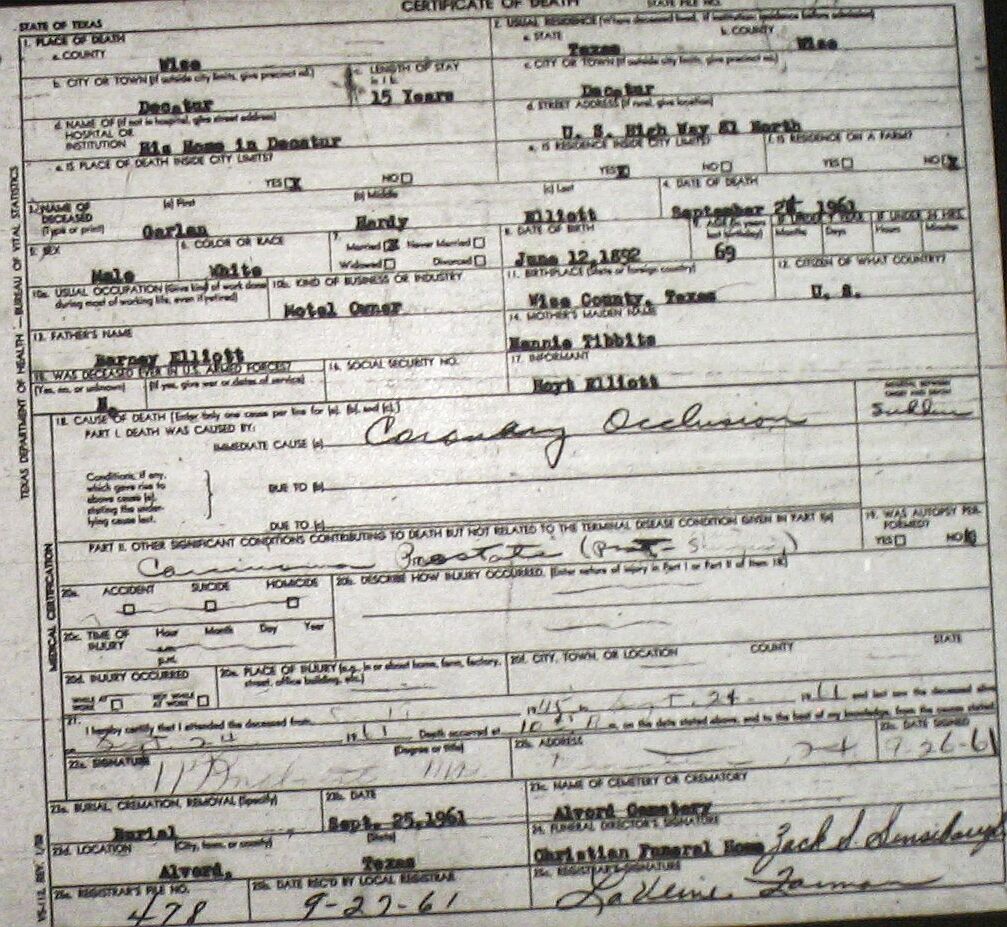 CERTIFICATE OF DEATH
STATE OF TEXAS
STATE FILE NO.
1. PLACE OF DEATH
a. COUNTY
Wise
2. USUAL RESIDENCE (Where deceased lived. If institution: residence before admission)
a. STATE
Texas
b. COUNTY
Wise
b. CITY OR TOWN (If outside city limits, give precinct no.)
Decatur
c. LENGTH OF STAY in 1 b.
15 Years
c. CITY OR TOWN (If outside city limits, give precinct no.)
Decatur
d. NAME OF (If not in hospital, give street address)
HOSPITAL OR
INSTITUTION
His Home in Decatur
d. STREET ADDRESS (If rural, give location)
U. S. High Way 81 North
e. IS PLACE OF DEATH INSIDE CITY LIMITS?
YES X NO
e. IS RESIDENCE INSIDE CITY LIMITS?
YES X NO
f. IS RESIDENCE ON A FARM?
YES NO X
3. NAME OF
DECEASED
(Type or print)
(a) First
Garlan
(b) Middle
Hardy
(c) Last
Elliott
4. DATE OF DEATH
September 24 1961
5. SEX
Male
6. COLOR OR RACE
White
7.
Married X Never Married
Widowed Divorced
8. DATE OF BIRTH
June 12, 1892
9. AGE (In years last birthday)
69
IF UNDER 1 YEAR
Months Days
IF UNDER 24 HRS.
Hours Minutes
10a. USUAL OCCUPATION (Give kind of work done
during most of working life, even if retired)
10b. KIND OF BUSINESS OR INDUSTRY
Motel Owner
11. BIRTHPLACE (State or foreign country)
Wise County, Texas
12. CITIZEN OF WHAT COUNTRY?
U. S.
13. FATHER'S NAME
Barney Elliott
14. MOTHER'S MAIDEN NAME
Nannie Tibbits
15. WAS DECEASED EVER IN U.S. ARMED FORCES?
(Yes, no, or unknown) (If yes, give war or dates of service)
16. SOCIAL SECURITY NO.
17. INFORMANT
Hoyt Elliott
18. CAUSE OF DEATH [Enter only one cause per line for (a), (b), and (c).]
PART I. DEATH WAS CAUSED BY:
IMMEDIATE CAUSE (a) Coronary Occlusion
INTERVAL BETWEEN
ONSET AND DEATH
Sudden
Conditions, if any,
which gave rise to
above cause (a),
stating the under-
lying cause last.
DUE TO (b)
DUE TO (c)
PART II. OTHER SIGNIFICANT CONDITIONS CONTRIBUTING TO DEATH BUT NOT RELATED TO THE TERMINAL DISEASE CONDITION GIVEN IN PART I(a)
Carcinoma Prostate
19. WAS AUTOPSY PER-
FORMED?
YES NO
20a.
ACCIDENT SUICIDE HOMICIDE
20b. DESCRIBE HOW INJURY OCCURRED. (Enter nature of injury in Part I or Part II of item 18)
20c. TIME OF
INJURY
Hour Month Day Year
a.m.
p.m.
20d. INJURY OCCURRED
WHILE AT WORK NOT WHILE AT WORK
20e. PLACE OF INJURY (e.g., in or about home, farm, factory,
street, office building, etc.)
20f. CITY, TOWN, OR LOCATION COUNTY STATE
21.
I hereby certify that I attended the deceased from 1945 to Sept. 24 1961 and last saw the deceased alive
on Sept. 24 1961 Death occurred at m. on the date stated above, and to the best of my knowledge, from the causes stated.
22a. SIGNATURE
(Degree or title)
22b. ADDRESS
22c. DATE SIGNED
9-26-61
23a. BURIAL, CREMATION, REMOVAL (Specify)
Burial
23b. DATE
Sept. 25, 1961
23c. NAME OF CEMETERY OR CREMATORY
Alvord Cemetery
23d. LOCATION
(City, town, or county)
Alvord,
(State)
Texas
24. FUNERAL DIRECTOR'S SIGNATURE
Christian Funeral Home
25a. REGISTRAR'S FILE NO.
478
25b. DATE REC'D BY LOCAL REGISTRAR
9-27-61
25c. REGISTRAR'S SIGNATURE
TEXAS DEPARTMENT OF HEALTH — BUREAU OF VITAL STATISTICS
MEDICAL CERTIFICATION